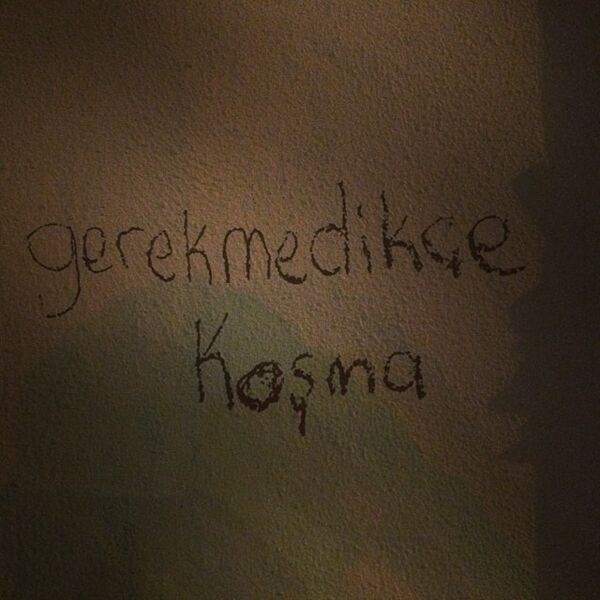 gerekmedikçe
Koşma